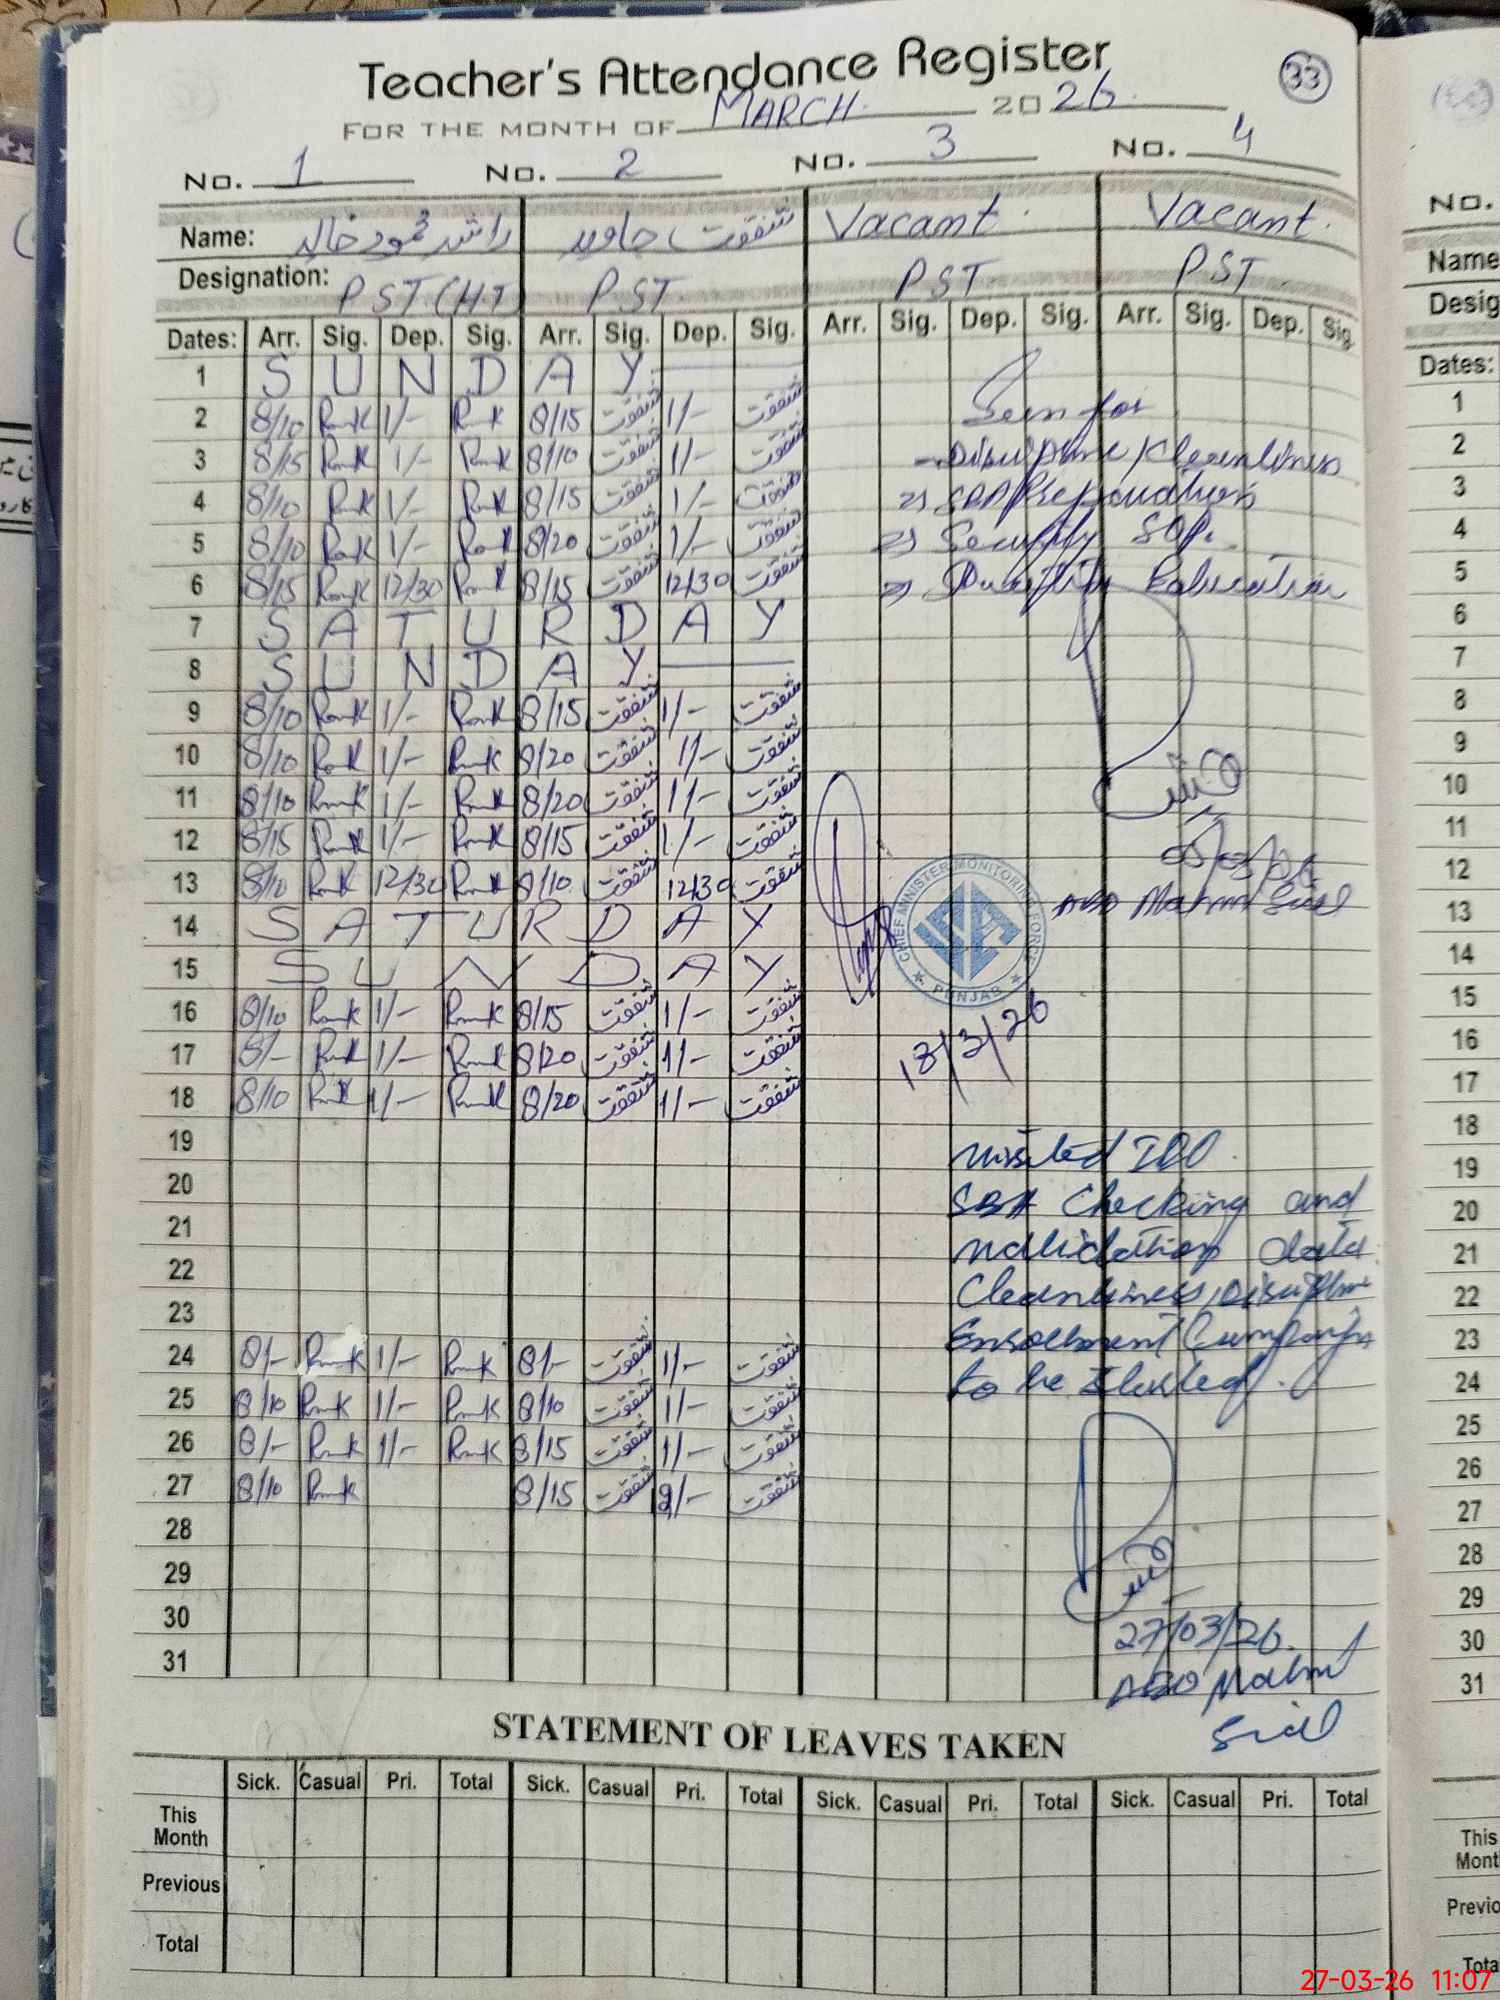 Teacher's Attendance Register
33
FOR THE MONTH OF MARCH 2026
No. 1 No. 2 No. 3 No. 4
Name: راشد محمود خالد شفقت جاوید Vacant. Vacant.
Designation: PST(HT) PST. PST. PST
Dates: Arr. Sig. Dep. Sig. Arr. Sig. Dep. Sig. Arr. Sig. Dep. Sig. Arr. Sig. Dep. Sig.
1 SUNDAY
2 8/10 1/- 8/15 شفقت 1/- شفقت
3 8/15 1/- 8/10 شفقت 1/- شفقت
4 8/10 1/- 8/15 شفقت 1/- شفقت
5 8/10 1/- 8/20 شفقت 1/- شفقت
6 8/15 12/30 8/15 شفقت 12/30 شفقت
7 SATURDAY
8 SUNDAY
9 8/10 1/- 8/15 شفقت 1/- شفقت
10 8/10 1/- 8/20 شفقت 1/- شفقت
11 8/10 1/- 8/20 شفقت 1/- شفقت
12 8/15 1/- 8/15 شفقت 1/- شفقت
13 8/10 12/30 8/10 شفقت 12/30 شفقت
14 SATURDAY
15 SUNDAY
16 8/10 1/- 8/15 شفقت 1/- شفقت
17 8/- 1/- 8/20 شفقت 1/- شفقت
18 8/10 1/- 8/20 شفقت 1/- شفقت
19
20
21
22
23
24 8/- 1/- 8/- شفقت 1/- شفقت
25 8/10 1/- 8/10 شفقت 1/- شفقت
26 8/- 1/- 8/15 شفقت 1/- شفقت
27 8/10 8/15 شفقت شفقت
28
29
30
31
Seen for
Discipline/Cleanliness
Security SOP.
Education
05/03/26
CHIEF MINISTER MONITORING FORCE
PUNJAB
18/3/26
Checking and
data
Cleanliness, Discipline
Enrollment Campaign
to be
27/03/26.
STATEMENT OF LEAVES TAKEN
Sick. Casual Pri. Total Sick. Casual Pri. Total Sick. Casual Pri. Total Sick. Casual Pri. Total
This Month
Previous
Total
No.
Name
Desig
Dates:
1
2
3
4
5
6
7
8
9
10
11
12
13
14
15
16
17
18
19
20
21
22
23
24
25
26
27
28
29
30
31
This
Mont
Previo
Tota
27-03-26 11:07